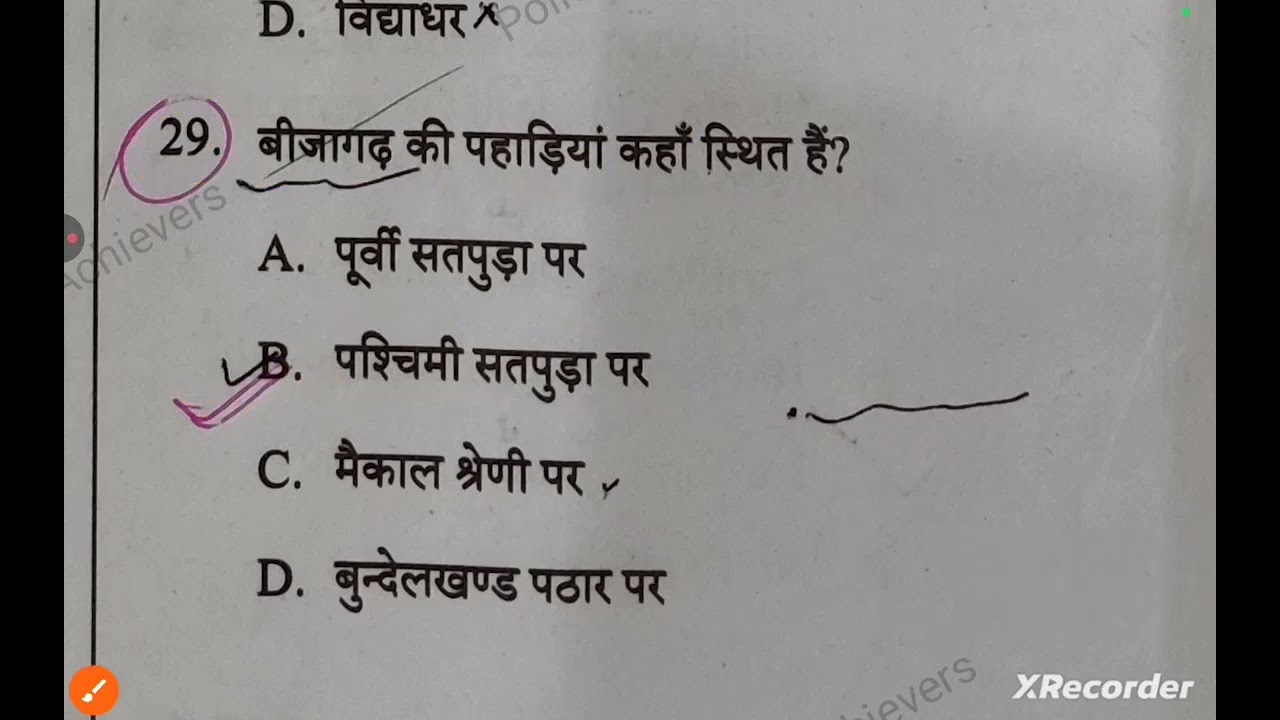 D. विद्याधर
29. बीजागढ़ की पहाड़ियां कहाँ स्थित हैं?
Achievers
A. पूर्वी सतपुड़ा पर
B. पश्चिमी सतपुड़ा पर
C. मैकाल श्रेणी पर
D. बुन्देलखण्ड पठार पर
XRecorder